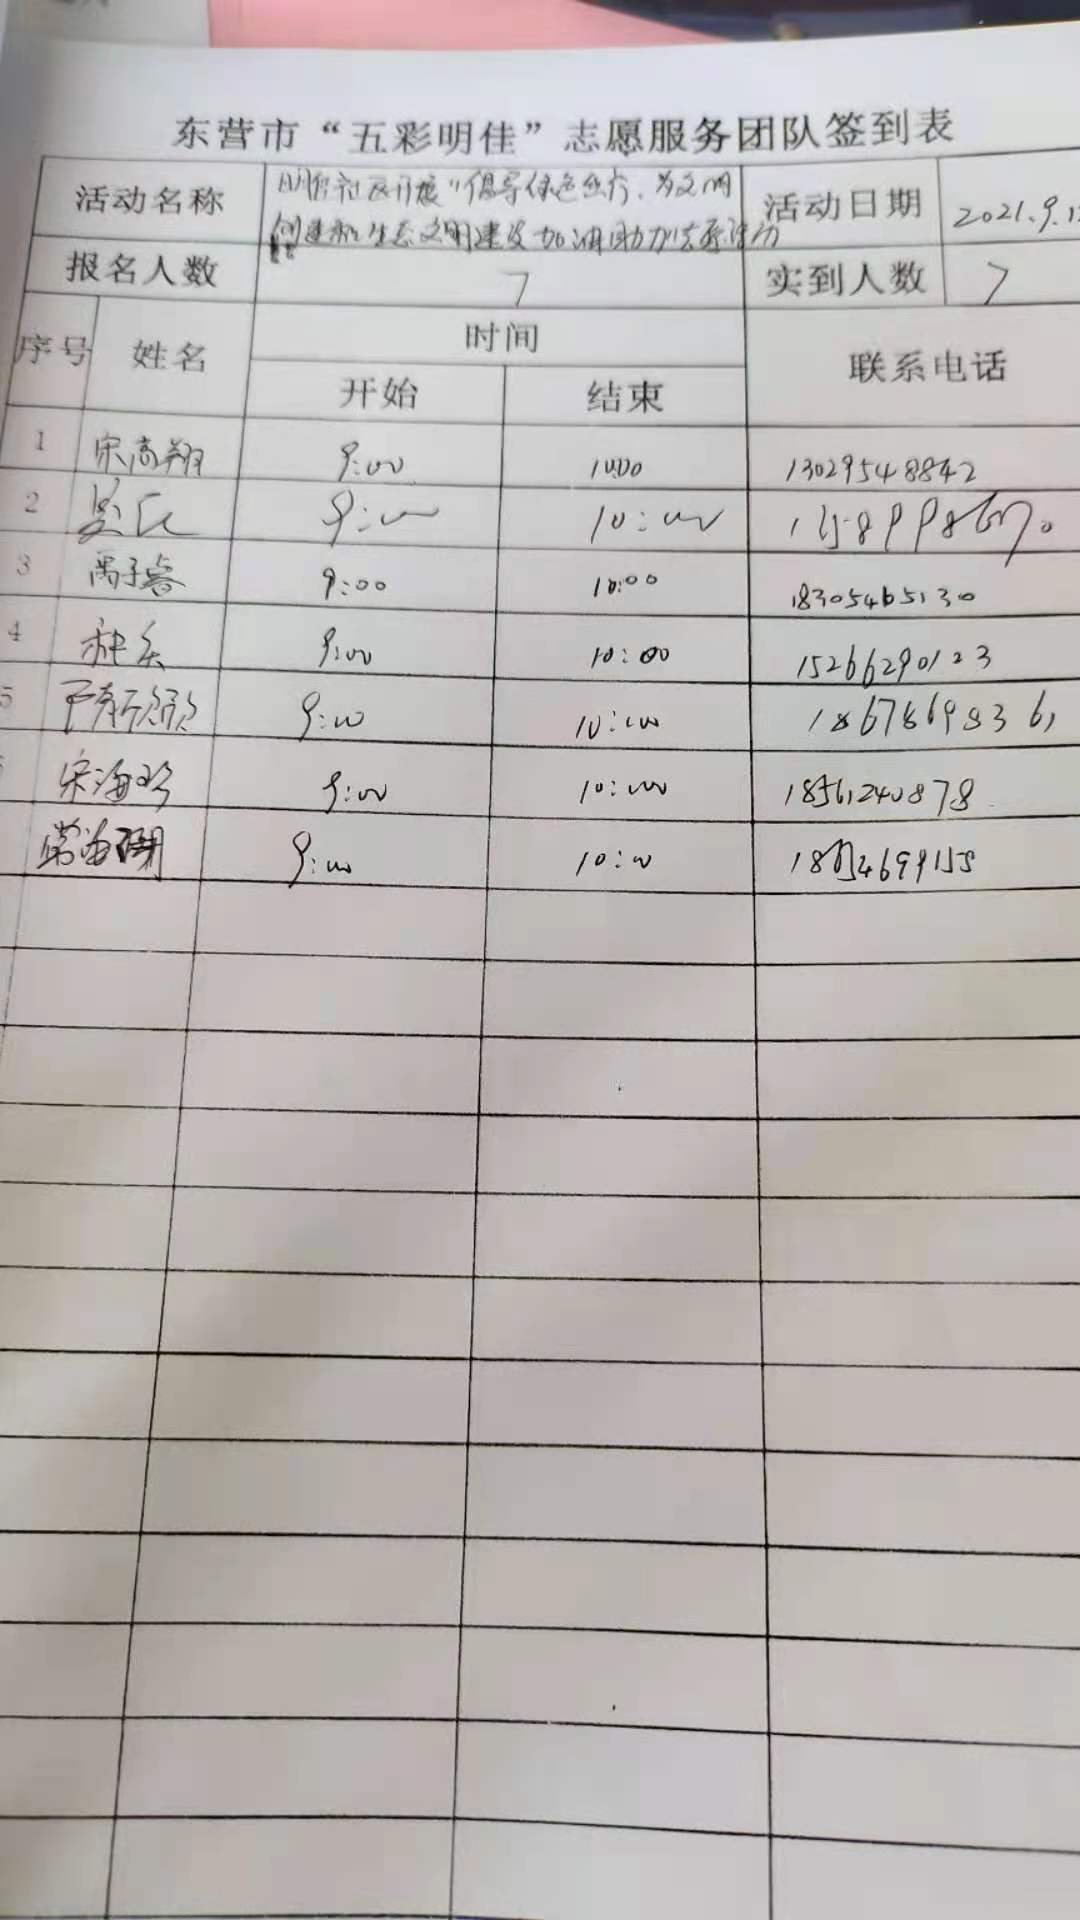 东营市“五彩明佳”志愿服务团队签到表
活动名称 明佳社区开展“倡导绿色出行，为文明 活动日期 2021.9.
创建和生态文明建设加油助力”志愿活动
报名人数 7 实到人数 7
序号 姓名 时间 联系电话
开始 结束
1 宋高翔 9:00 10:00 13029548842
2 9:00 10:00
3 9:00 10:00 18305465130
4 9:00 10:00 15266290123
5 9:00 10:00 18678698361
宋海珍 9:00 10:00 18561240878
9:00 10:00 18654699155